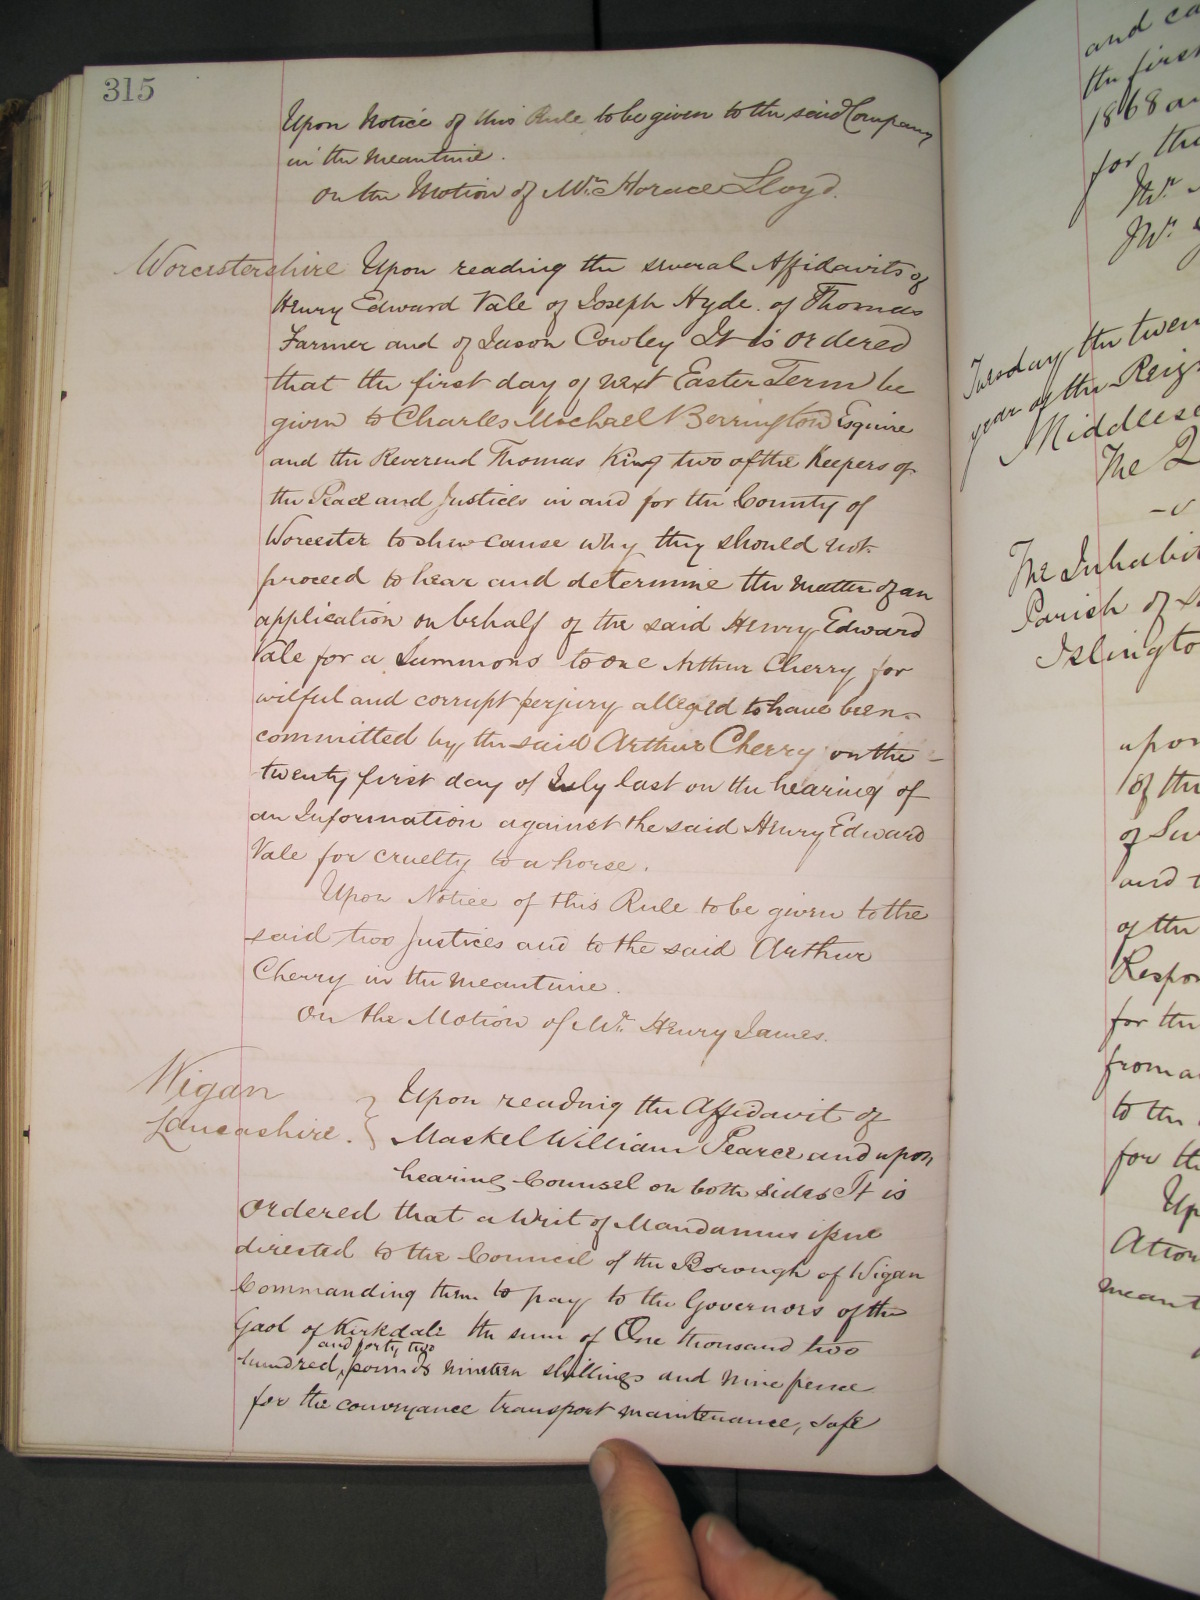 315
Upon Notice of this Rule to be given to the said Company
in the meantime.
On the Motion of Mr. Horace Lloyd.
Worcestershire Upon reading the several Affidavits of
Henry Edward Vale of Joseph Hyde of Thomas
Farmer and of Jason Cowley It is ordered
that the first day of next Easter Term be
given to Charles Michael Berrington Esquire
and the Reverend Thomas King two of the Keepers of
the Peace and Justices in and for the County of
Worcester to shew cause why they should not
proceed to hear and determine the matter of an
application on behalf of the said Henry Edward
Vale for a Summons to one Arthur Cherry for
wilful and corrupt perjury alleged to have been
committed by the said Arthur Cherry on the
twenty first day of July last on the hearing of
an Information against the said Henry Edward
Vale for cruelty to a horse.
Upon Notice of this Rule to be given to the
said two Justices and to the said Arthur
Cherry in the meantime.
On the Motion of Mr. Henry James.
Wigan
Lancashire.
Upon reading the Affidavit of
Maskel William Pearce and upon
hearing Counsel on both sides It is
Ordered that a Writ of Mandamus issue
directed to the Council of the Borough of Wigan
Commanding them to pay to the Governors of the
Gaol of Kirkdale the sum of One thousand two
and forty two
hundred pounds nineteen shillings and nine pence
for the conveyance transport maintenance, safe
and
the first
1868
for the
Mr.
Mr.
Tuesday the
year of the Reign
The
The
Parish of
upon
of the
and
of the
for the
from
to the
for the